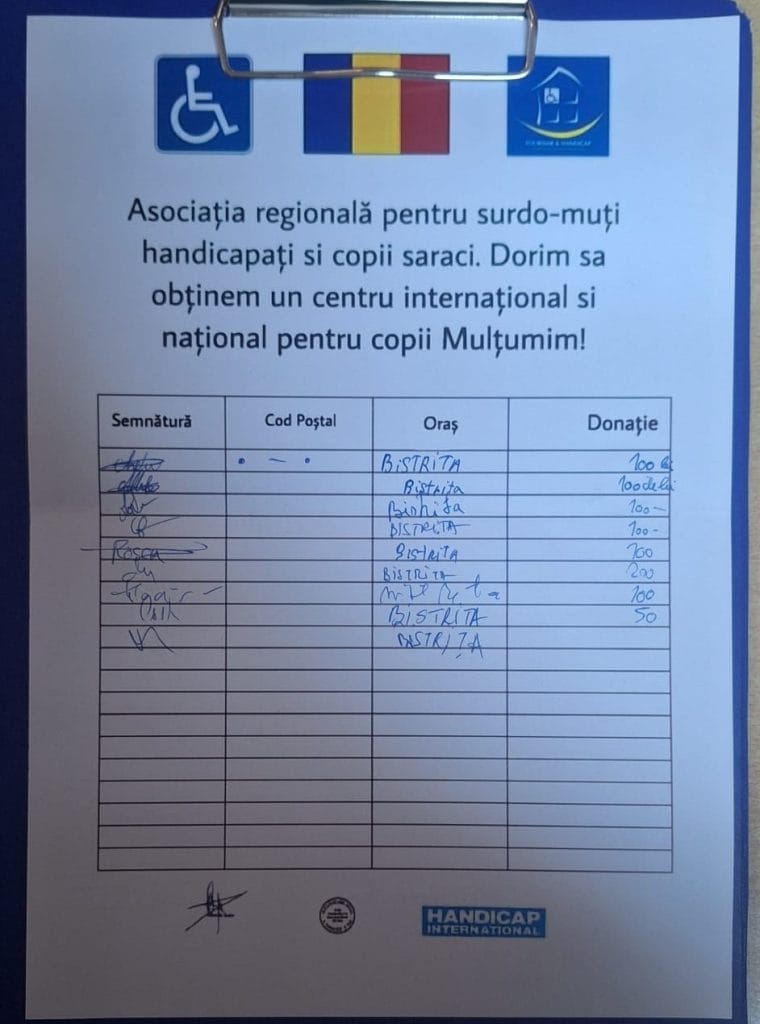 Asociația regională pentru surdo-muți
handicapați si copii saraci. Dorim sa
obținem un centru internațional si
național pentru copii Mulțumim!
Semnătură Cod Poștal Oraș Donație
BISTRITA 100 lei
Bistrita 100 de lei
100-
BISTRITA 100-
Roșca BISTRITA 100
BISTRITA 200
100
BISTRITA 50
BISTRIȚA
HANDICAP
INTERNATIONAL